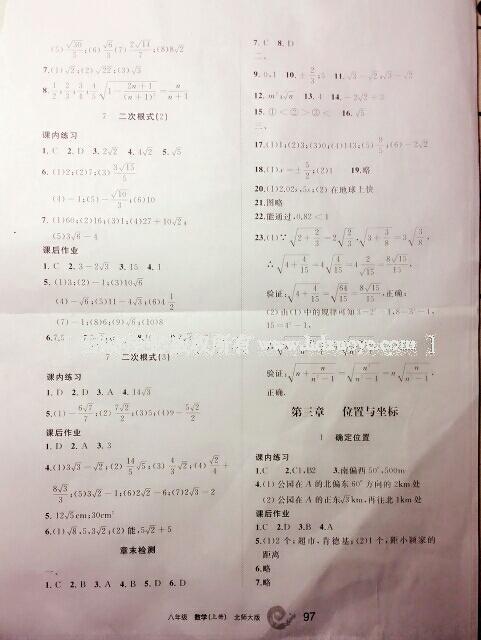 (5) √30/3;(6) √6/3 (7) 2√14/7;(8)8√2
7.(1)√2;(2)√22;(3)√3
8. 1/2,2/3,3/4,4/5 √(1−(2n+1)/(n+1)²)=n/(n+1)
7 二次根式(2)
课内练习
1.C 2.D 3.2√2 4.4√2 5.√5
6.(1)2;(2)7;(3) 3√15/5
(4)−1;(5)−√10/3;(6)10
7.(1)60;(2)16;(3)1;(4)27+10√2;
(5)3√6−4
课后作业
1.C 2.3−2√3 3.15 4.1
5.(1)3;(2)−1;(3)10√6
(4)−√6;(5)11−4√3;(6)4 1/2
(7)−1;(8)6;(9)√6;(10)8
7 二次根式(3)
课内练习
1.D 2.D 3.A 4.14√3
5.(1)−6√7/7;(2) 7√2/2;(3)5;(4)9−5√2/2
课后作业
1.D 2.A 3.3
4.(1)3√3−√2;(2) 14/5 √5;(3) 4/3 √2;(4) √2/4+
8√3/3;(5)3√2−1;(6)2√2−6;(7)2√3−2
5.12√5cm;30cm²
6.(1)√8,5,3√2;(2)能,5√2+5
章末检测
一、
1.C 2.B 3.A 4.B 5.D 6.D
7.C 8.D
二、
9.0,1 10.±2/3;5 11.√3−√2,√3−√2
12.m²√n 13.4 14.−2√2+3
15.①<②>③< 16.√5
三、
17.(1)1;(2)3;(3)0;(4)143;(5) 9/5;(6)−2√2
18.(1)x=±5/2;(2)1 19.略
20.(1)2.02s,5s;(2)在地球上快
21.图略
22.能通过,0.82<1
23.(1)∵√(2+2/3)=2√(2/3),√(3+3/8)=3√(3/8),
∴√(4+4/15)=4√(4/15)=4 2/√15=8√15/15,
验证:√(4+4/15)=√(64/15)=8√15/15,正确;
(2)由(1)中的规律可知3=2²−1,8=3²−1,
15=4²−1,
正确.
第三章 位置与坐标
1 确定位置
课内练习
1.C 2.C1,B2 3.南偏西50°,500m
4.(1)公园在A的北偏东60°方向的2km处
(2)公园在A的正东√3km,再往北1km处
课后作业
1.C 2.D 3.B 4.A
5.(1)2个;超市,肯德基;(2)1个,距小颖家的
距离
6.略
7.略
八年级 数学(上册) 北师大版 97